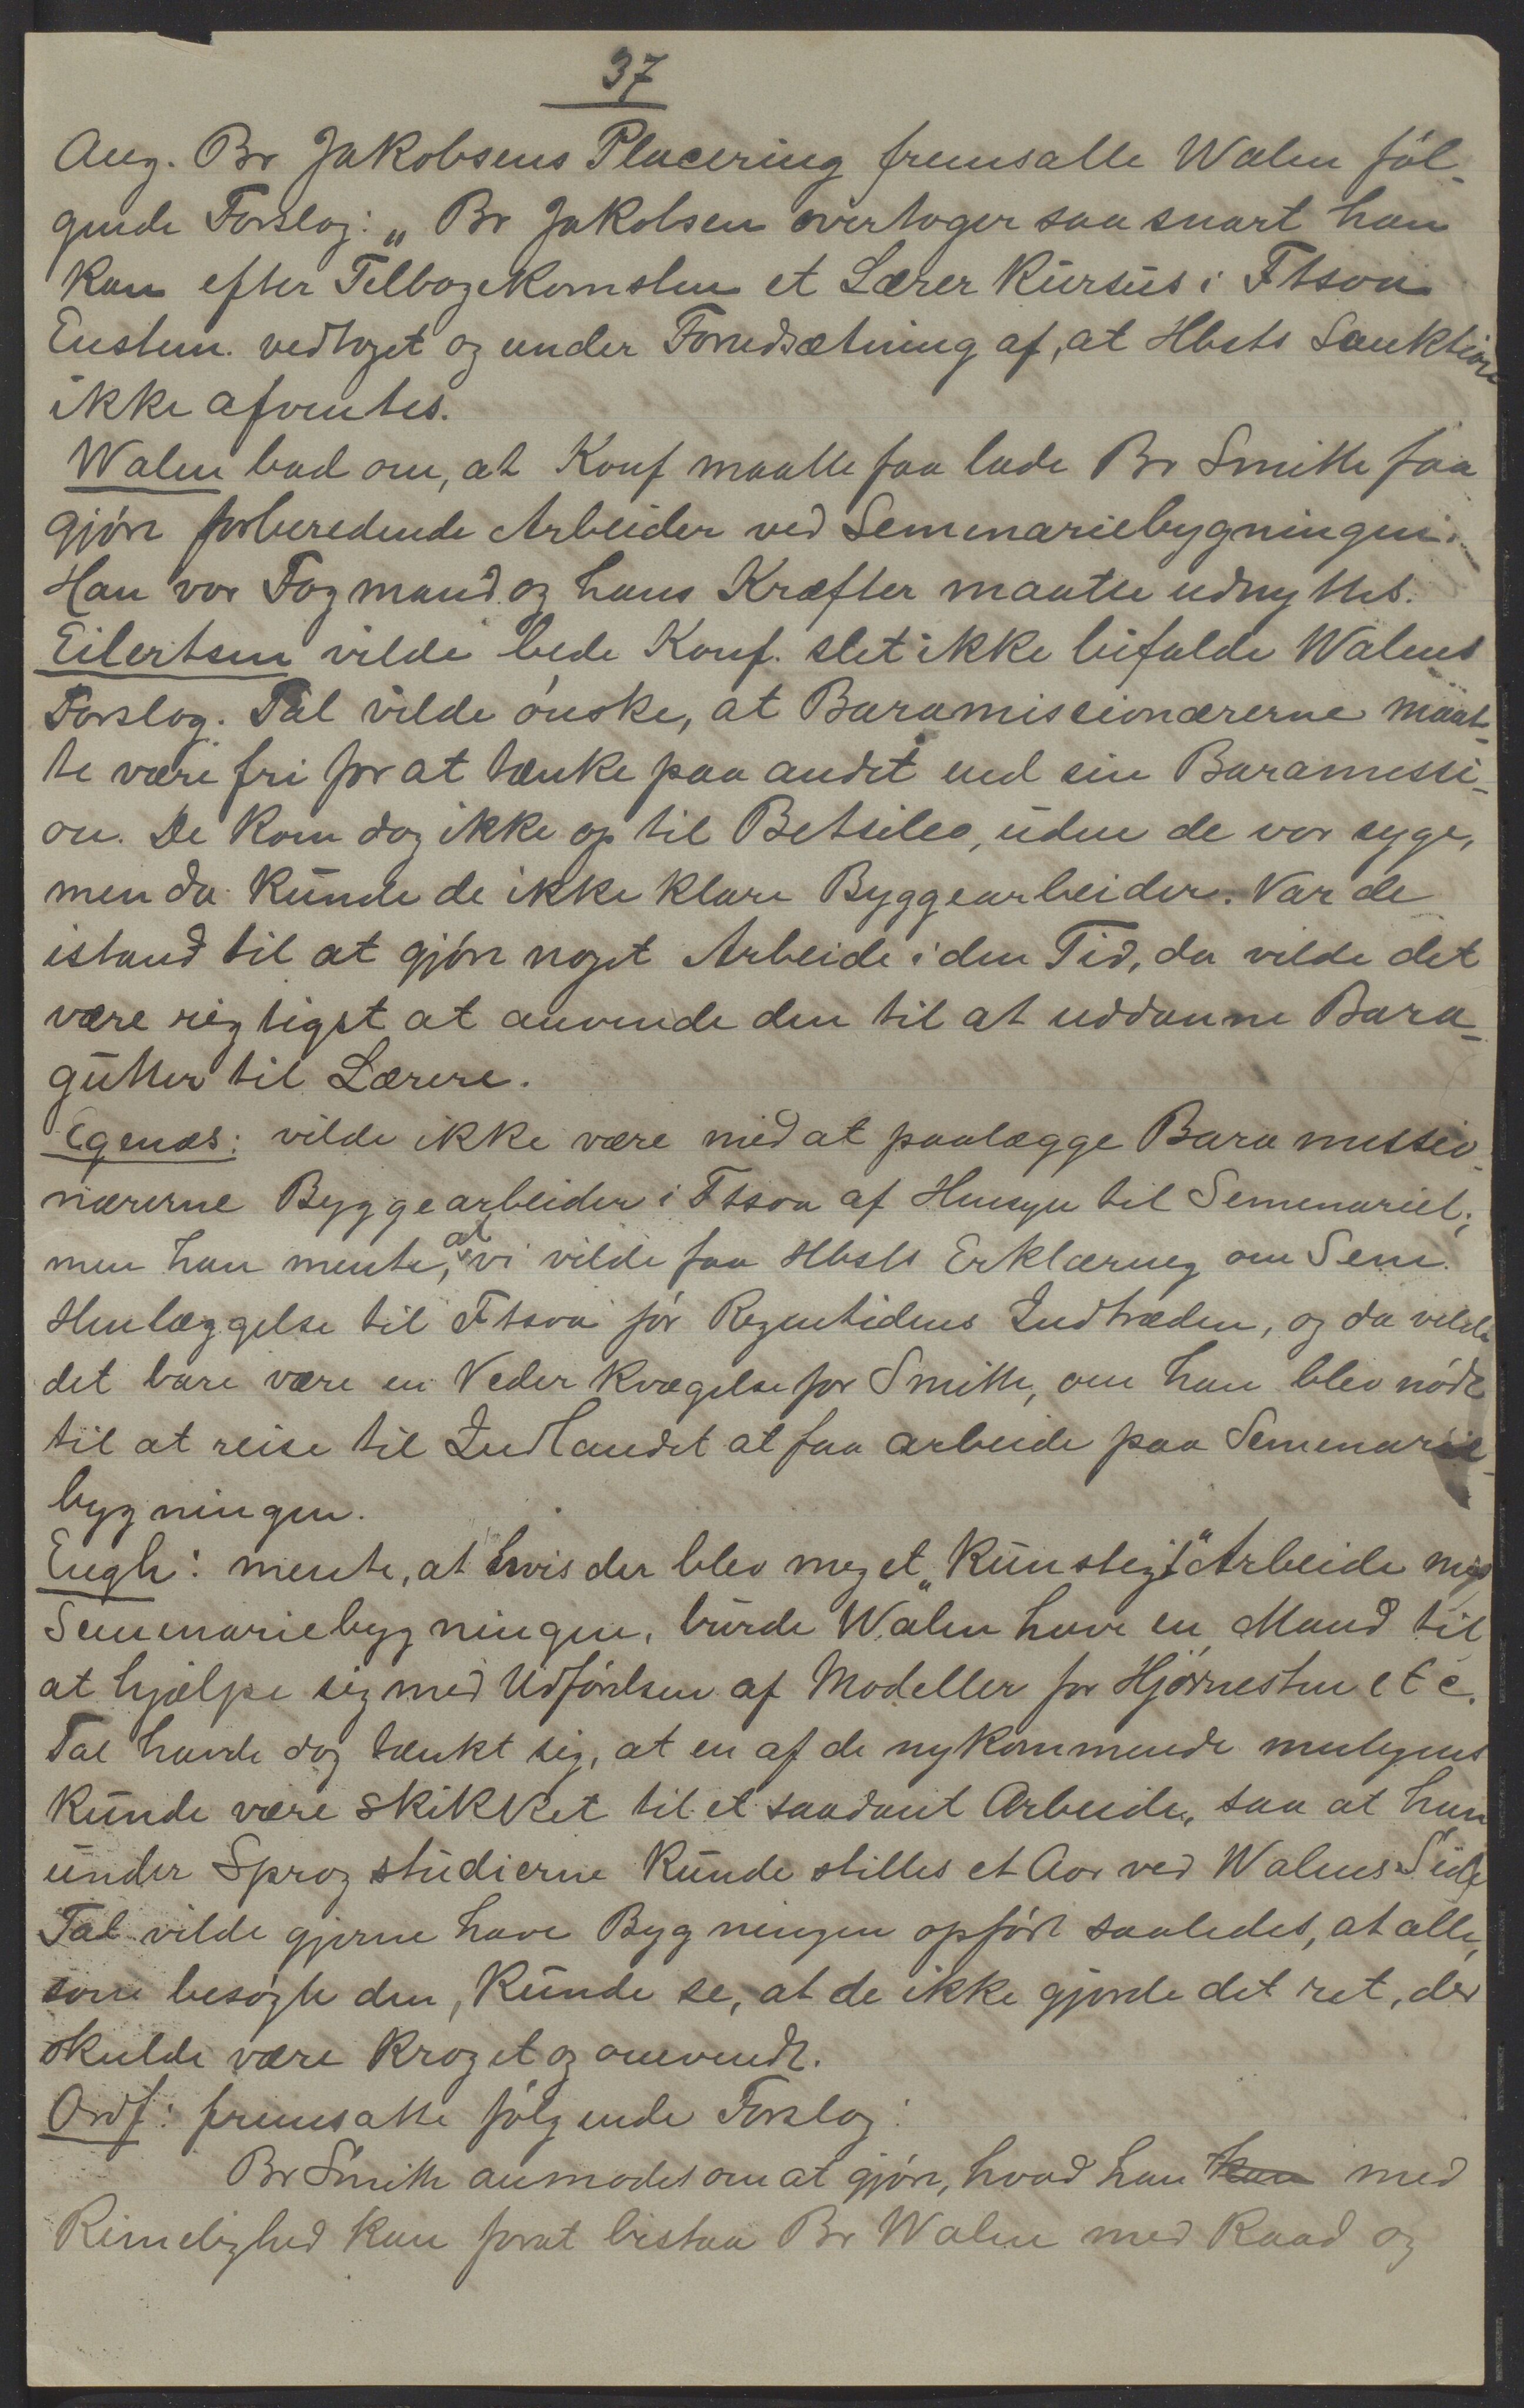 37
Ang. Br Jakobsens Placering fremsatte Walen føl-
gende Forslag: „ Br Jakobsen overtager saa snart han
kan efter Tilbagekomsten et Lærer kursus i Ftsoa
Enstem. vedtaget og under Forudsætning af, at Hbsts Sanktion
ikke afventes.
Walen bad om, at Konf maatte faa lade Br Smith faa
gjøre forberedende Arbeider ved Seminariebygningen.
Han var Fagmand og hans Kræfter maatte udnyttes.
Eilertsen vilde bede Konf. slet ikke bifalde Walens
Forslag. Tal vilde ønske, at Baramissionærerne maat-
te være fri for at tænke paa andet end sin Baramissi-
on. De kom dog ikke op til Betsileo, uden de var syge,
men da kunde de ikke klare Byggearbeider. Var de
istand til at gjøre noget Arbeide i den Tid, da vilde det
være rigtigst at anvende den til at uddanne Bara-
gutter til Lærere.
Egenæs: vilde ikke være med at paalægge Bara missio-
nærerne Byggearbeider i Ftsoa af Hensyn til Seminariet;
men han mente, at vi vilde faa Hbsts Erklæring om Sem.
Henlæggelse til Ftsoa før Regntidens Indtræden, og da vilde
det bare være en Vederkvægelse for Smith, om han blev nødt
til at reise til Indlandet at faa arbeide paa Seminarie-
bygningen.
Engh: mente, at hvis der blev meget „kunstigt" Arbeide med
Seminariebygningen, burde Walen have en Mand til
at hjælpe sig med Udførelsen af Modeller for Hjørnesten etc.
Tal havde dog tænkt sig, at en af de nykommende muligens
kunde være skikket til et saadant Arbeide, saa at han
under Sprogstudierne kunde stilles et Aar ved Walens Side
Tal vilde gjerne have Bygningen opført saaledes, at alle,
som besøgte den, kunde se, at de ikke gjorde det ret, der
skulde være kroget og omvendt.
Ordf: fremsatte følgende Forslag:
Br Smith anmodes om at gjøre, hvad han kan med
Rimelighed kan forat bistaa Br Walen med Raad og